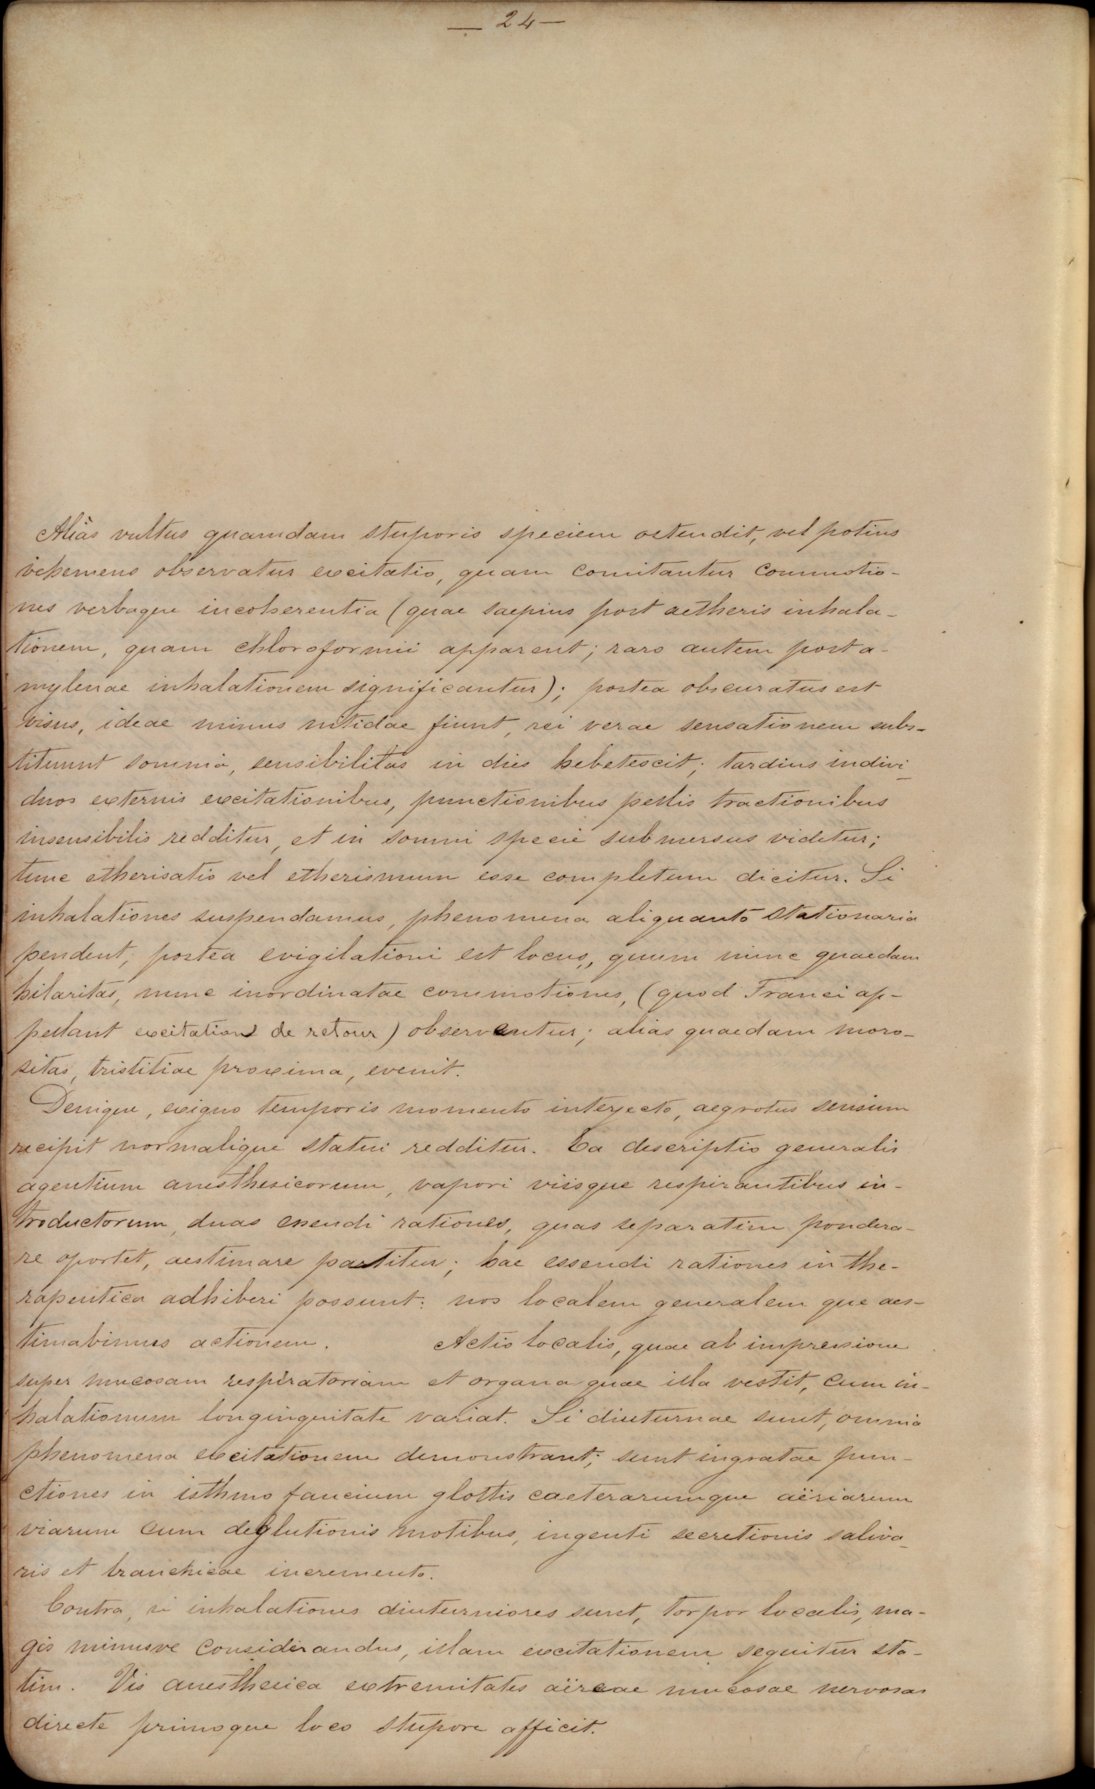 — 24 —
Aliàs vultus quamdam stuporis speciem ostendit, vel potius
vehemens observatur excitatio, quam comitantur commotio-
nes verbaque incoherentia (quae saepius post aetheris inhala-
tionem, quam chloroformii apparent; raro autem post a-
mylenae inhalationem significantur); postea obscuratus est
visus, ideae minus nitidae fiunt, rei verae sensationem subs-
tituunt somnia, sensibilitas in dies hebetescit; tardius indivi-
duos externis excitationibus, punctionibus pellis tractionibus
insensibilis redditur, et in somni specie submersus videtur;
tunc etherisatio vel etherismum esse completum dicitur. Si
inhalationes suspendamus, phenomena aliquanto stationaria
pendent; postea evigilationi est locus, quum nunc quaedam
hilaritas, nunc inordinatae commotiones, (quod Franci ap-
pellant excitation de retour) observentur; alias quaedam moro-
sitas, tristitiae proxima, evenit.
Denique, exiguo temporis momento interjecto, aegrotus sensum
recipit normalique statui redditur. Ea descriptio generalis
agentium anesthesicorum, vapori viisque respirantibus in-
troductorum, duas essendi rationes, quas separatim pondera-
re oportet, aestimare partitur; hae essendi rationes in the-
rapeutica adhiberi possunt: nos localem generalem que aes-
timabimus actionem. Actio localis, quae ab impressione
super mucosam respiratoriam et organa quae illa vestit, cum in-
halationum longinquitate variat. Si diuturnae sunt, omnia
phenomena excitationem demonstrant; sunt ingratae pun-
ctiones in isthmo faucium glottis caeterarumque aëriarum
viarum cum deglutionis motibus, ingenti secretionis saliva-
ris et branchicae incremento.
Contra, si inhalationes diuturniores sunt, torpor localis, ma-
gis minusve considerandus, illam excitationem sequitur sta-
tim. Vis anesthesica extremitates aëreae mucosae nervosas
directe primoque loco stupore afficit.